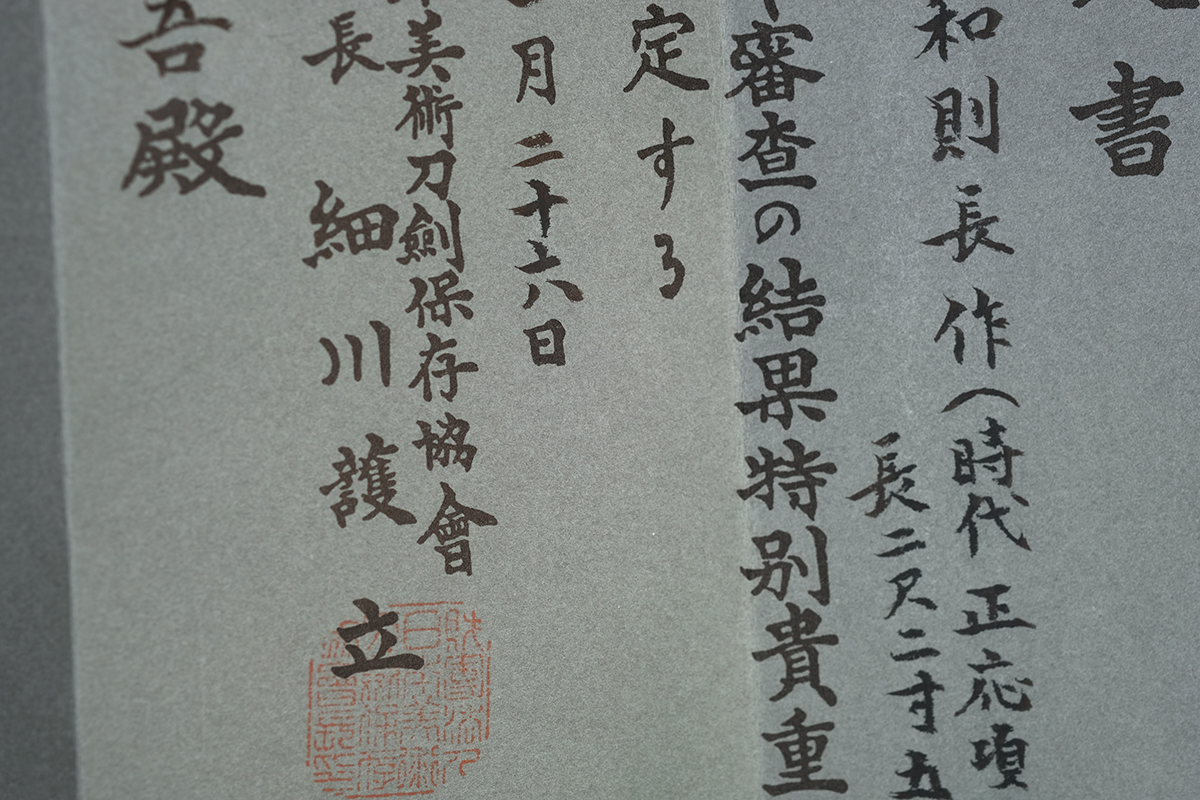 書
和則長作(時代正応頃
長二尺二寸五
審査の結果特別貴重
定する
月二十六日
美術刀劍保存協會
長細川護立
吾殿